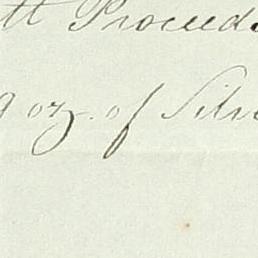 tt Proceed
9 oz. of Silv